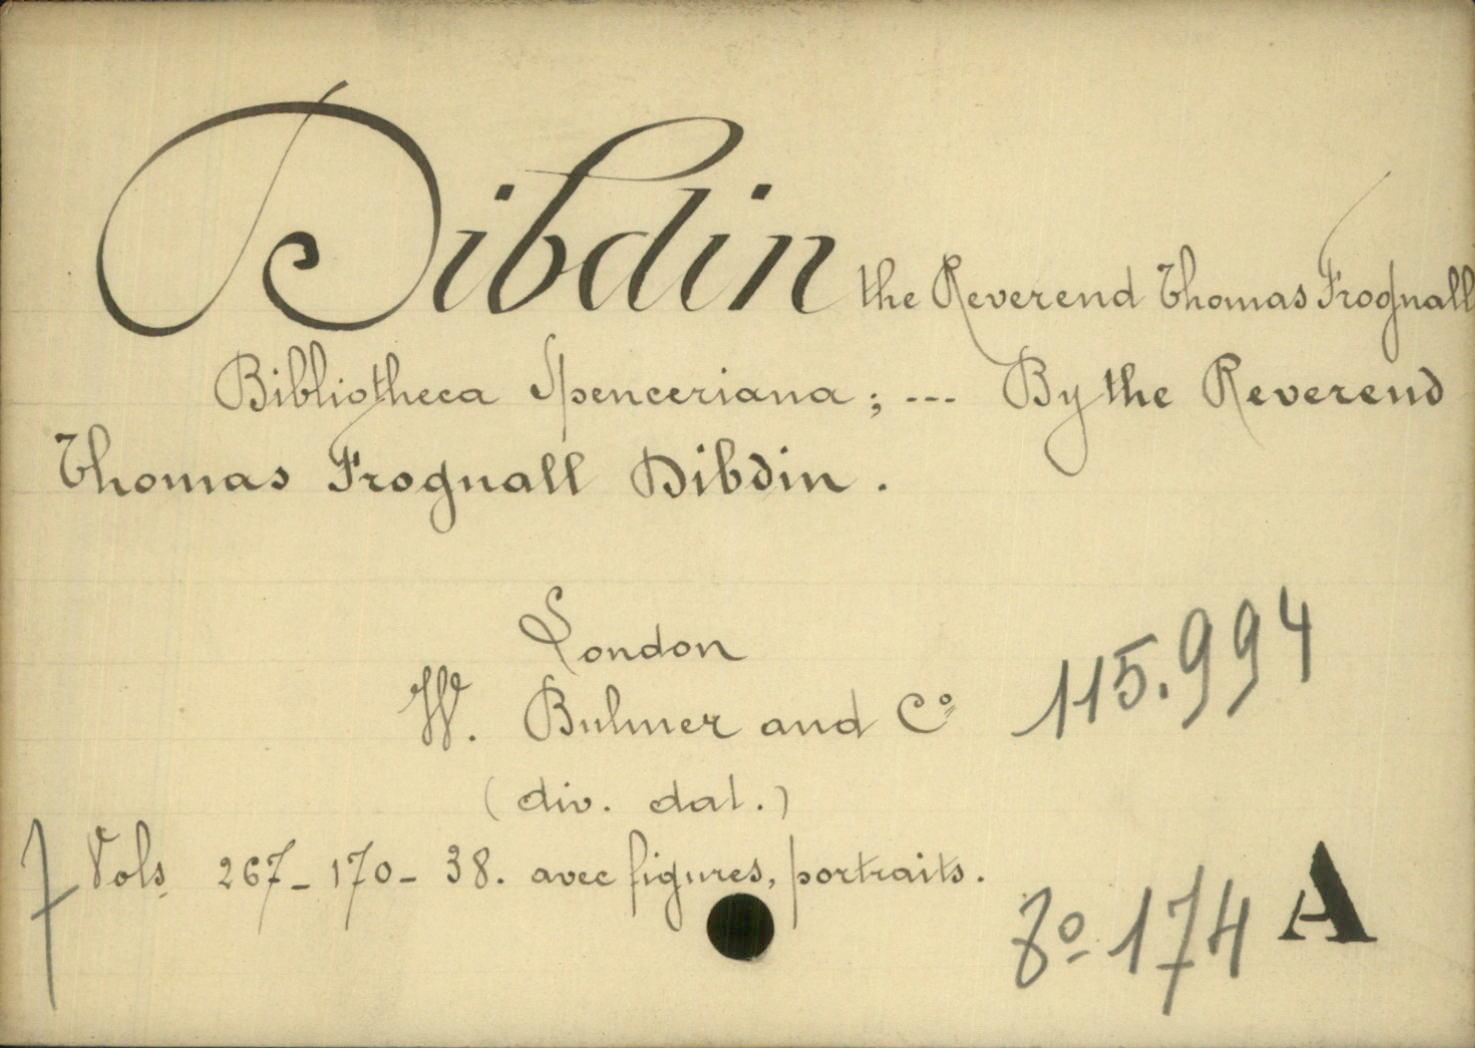 Dibdin the Reverend Thomas Frognall
Bibliotheca Spenceriana; --- By the Reverend
Thomas Frognall Dibdin.
London
W. Bulmer and Cº
115.994
(div. dat.)
7 Vols 267_170_38. avec figures, portraits.
8º 174 A